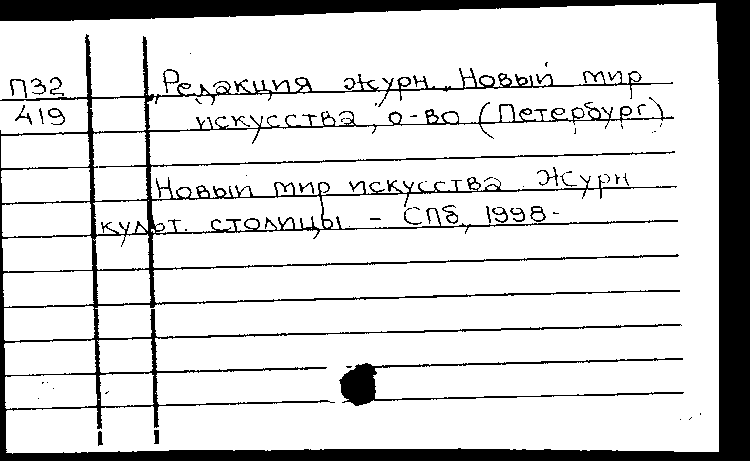 П32 „Редакция журн. „Новый мир
419 искусства, о-во (Петербург)
Новый мир искусства Журн
культ. столицы. - СПб, 1998-